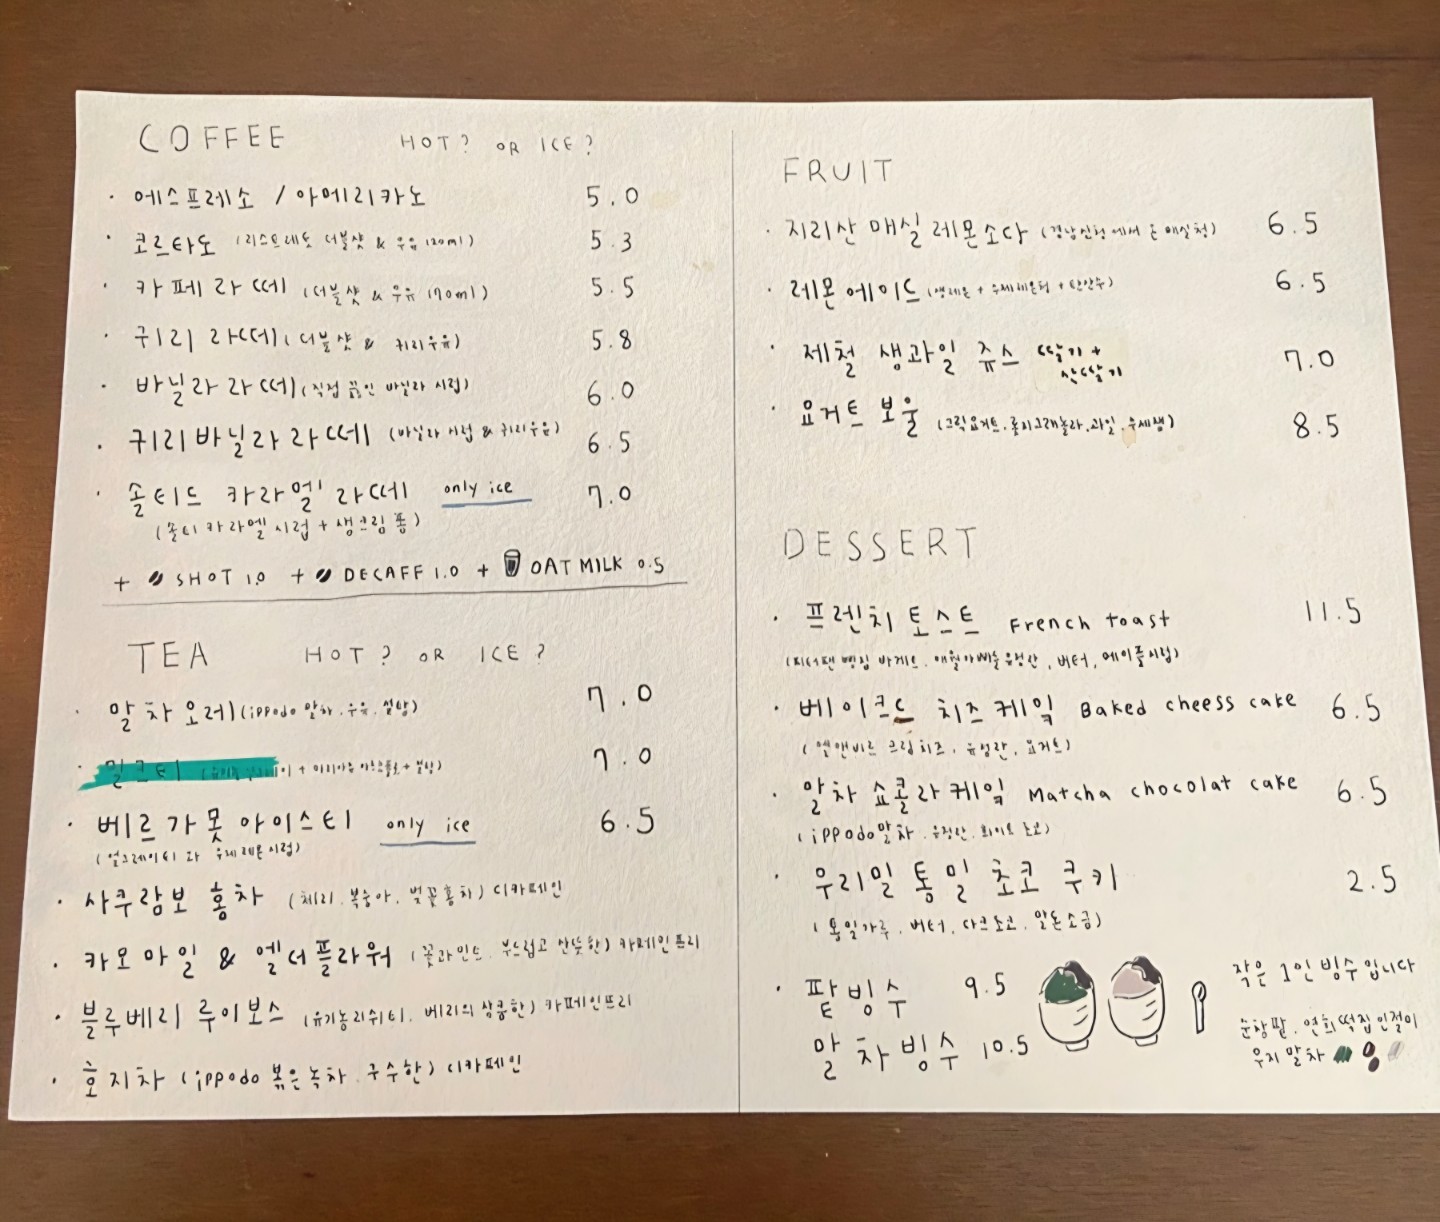 COFFEE HOT? OR ICE?
· 에스프레소 / 아메리카노 5.0
· 코르타도 (리스트레또 더블샷 & 우유 120ml) 5.3
· 카페라떼 (더블샷 & 우유 170ml) 5.5
· 귀리 라떼 (더블샷 & 귀리우유) 5.8
· 바닐라 라떼 (직접 끓인 바닐라 시럽) 6.0
· 귀리바닐라 라떼 (바닐라 시럽 & 귀리우유) 6.5
· 솔티드 카라멜 라떼 only ice 7.0
(솔티 카라멜 시럽 + 생크림 폼)
+ SHOT 1.0 + DECAFF 1.0 + OAT MILK 0.5
TEA HOT? OR ICE?
· 말차오레 (ippodo 말차. 우유. 설탕) 7.0
· 밀크티 7.0
· 베르가못 아이스티 only ice 6.5
(얼그레이티와 수제레몬시럽)
· 사쿠람보 홍차 (체리. 복숭아. 벚꽃홍차) 디카페인
· 카모마일 & 엘더플라워 (꽃과민트. 부드럽고 산뜻한) 카페인프리
· 블루베리 루이보스 (유기농리쉬티. 베리의 상큼한) 카페인프리
· 호지차 (ippodo 볶은녹차. 구수한) 디카페인
FRUIT
· 지리산 매실 레몬소다 (경남산청에서 온 매실청) 6.5
· 레몬에이드 (생레몬 + 수제레몬청 + 탄산수) 6.5
· 제철 생과일 쥬스 딸기 +
산딸기 7.0
· 요거트 보울 (그릭요거트. 홀리그래놀라. 과일. 수제잼) 8.5
DESSERT
· 프렌치토스트 French toast 11.5
(피터팬 빵집 바게트. 애월아빠들 유정란. 버터. 메이플시럽)
· 베이크드 치즈케잌 Baked cheess cake 6.5
(엘앤비르 크림치즈. 유정란. 요거트)
· 말차 쇼콜라케잌 Matcha chocolat cake 6.5
(ippodo말차. 유정란. 화이트 초코)
· 우리밀 통밀 초코 쿠키 2.5
(통밀가루. 버터. 다크초코. 말돈소금)
· 팥빙수 9.5
말차빙수 10.5
작은 1인 빙수입니다
순창팥. 연희떡집인절미
우지말차